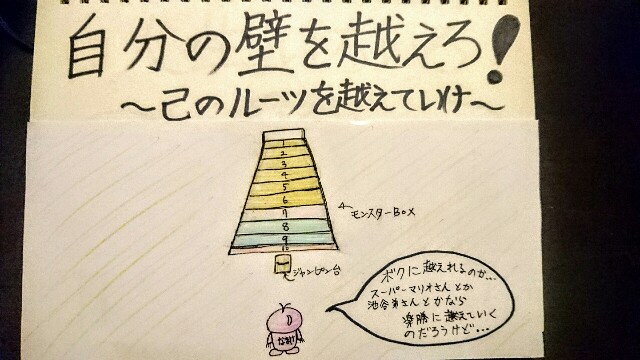 自分の壁を越えろ!
～己のルーツを越えていけ～
1
2
3
4
5
6
7
8
9
10
モンスターBOX
ジャンプ台
ボクに越えれるのか…
スーパーマリオさんとか
池谷弟さんとかなら
楽勝に越えていく
のだろうけど…